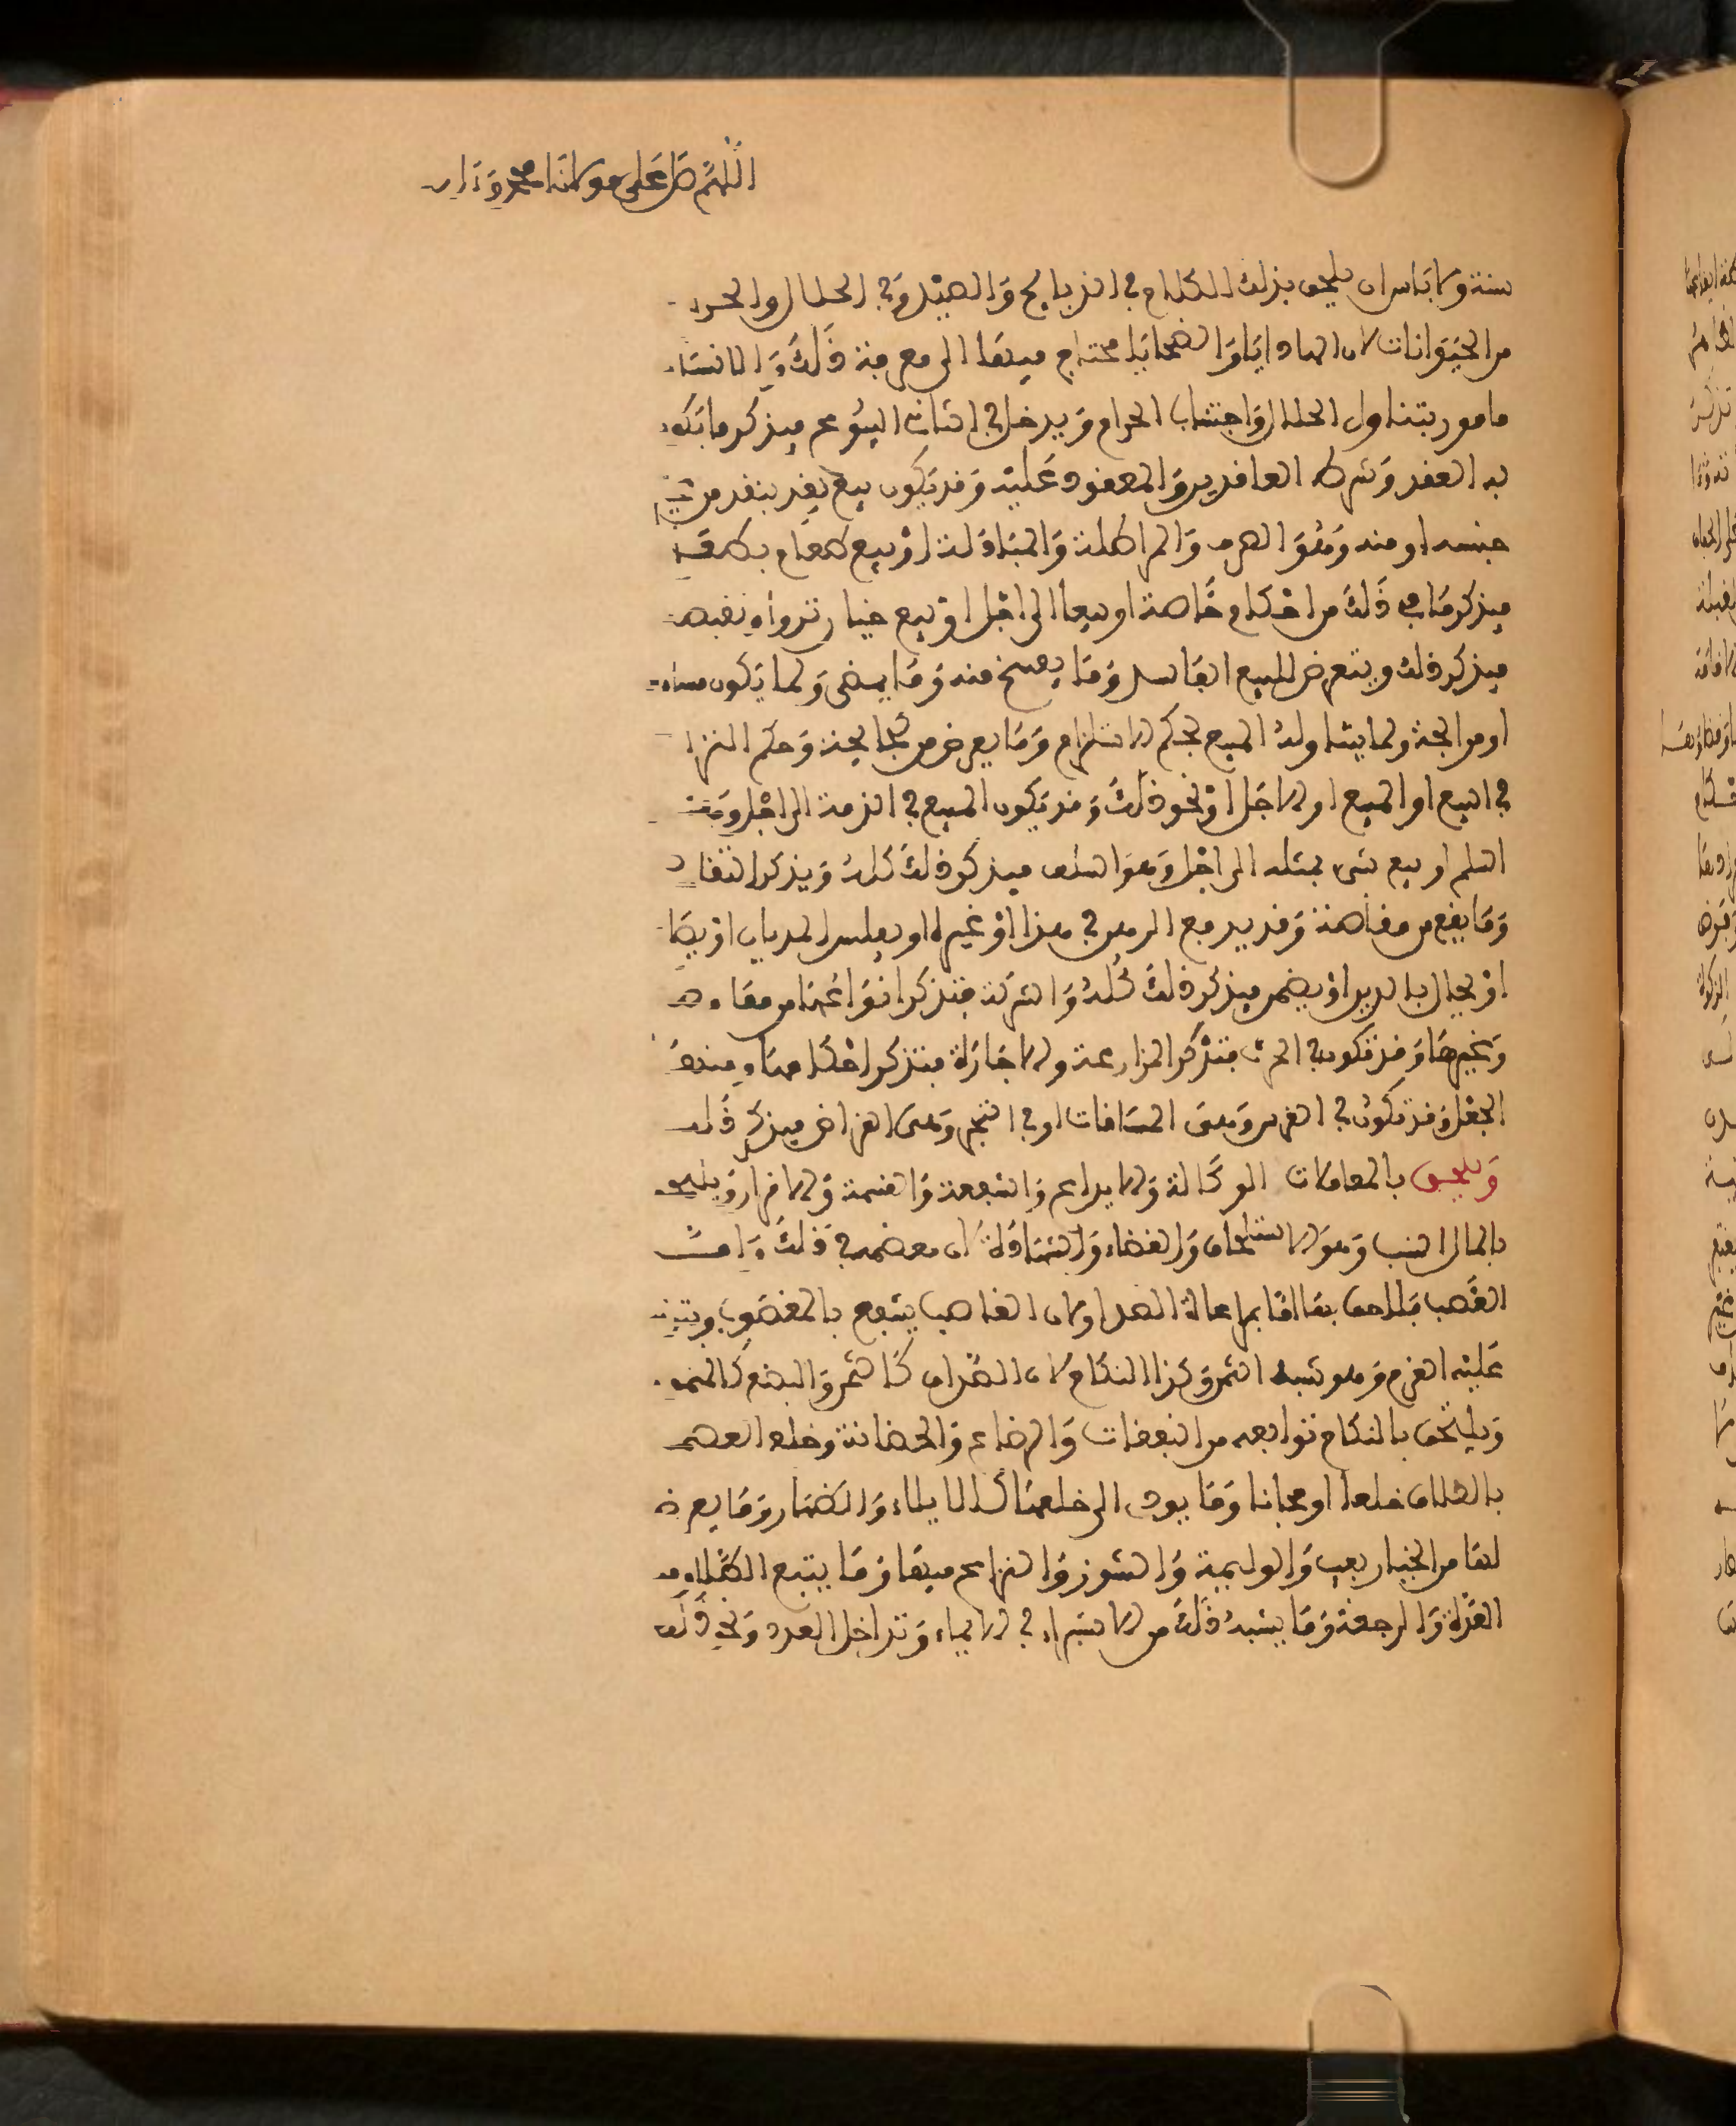 اللهم صل على مولانا محمد وءاله
سنة ولا باس ان يلحق بذلك الكلام في الذبايح والصيد وفي الحلال والحرام
من الحيوانات لان الهدايا والضحايا محتاج فيها الى معرفة ذلك والانسان
مامور بتناول الحلال واجتناب الحرام ويدخل في الثالث البيوع فيذكر ما يكون
به العقد وشرط العاقدين والمعقود عليه وقد يكون بيع نقد بنقد من غير
جنسه او منه وهو الصرف والمراطلة والمبادلة او بيع طعام بطعام
فيذكر ما في ذلك من احكام خاصة او بيعا الى اجل او بيع خيار
فيذكر ذلك ويتعرض للبيع الفاسد وما يفسخ منه وما يمضى ولما يكون مساومة
او مرابحة ولما يتناوله المبيع بحكم الاستلزام وما يعرض من الجائحة وحكم النزاع
في البيع او المبيع او الاجل او نحو ذلك وقد يكون المبيع في الذمة الى اجل وهو
السلم او بيع شيء بمثله الى اجل وهو السلف فيذكر ذلك كله ويذكر التقاضي
وما يقع من مقاصة وقد يدفع الرهن في هذا او غيره او يفلس المديان او
او يحال بالدين او يضمن فيذكر ذلك كله والشركة فتذكر انواعها من مفاوضة
وغيرها وقد تكون في الحرث فتذكر المزارعة والاجارة فتذكر احكامها ومنها
الجعل وقد تكون في الغرس وهي المساقات او في التجر وهي القراض فيذكر ذلك
ويلحق بالمعاملات الوكالة والايداع والشفعة والقسمة والاقرار ويلحق
بالمال النسب وهو الاستلحاق والقضاء والشهادة لان معظمه في ذلك وامـا
الغصب فملحق بها اما بمراعاة الضد او لان الغاصب ينتفع بالمغصوب ويترتب
عليه الغرم وهو شبه الثمن وكذا النكاح لان الصداق كالثمن والبضع كالمثمن
ويلتحق بالنكاح توابعه من النفقات والرضاع والحضانة وخلع العصمة
بالطلاق خلعا او مجانا وما يودي الى خلعها كالايلاء والظهار وما يعرض
لها من الخيار بعيب والوليمة والنشوز والنزاع فيها وما يتبع الطلاق من
العدة والرجعة وما يشبه ذلك من الاستبراء في الاماء وتداخل العدد ونحو ذلك